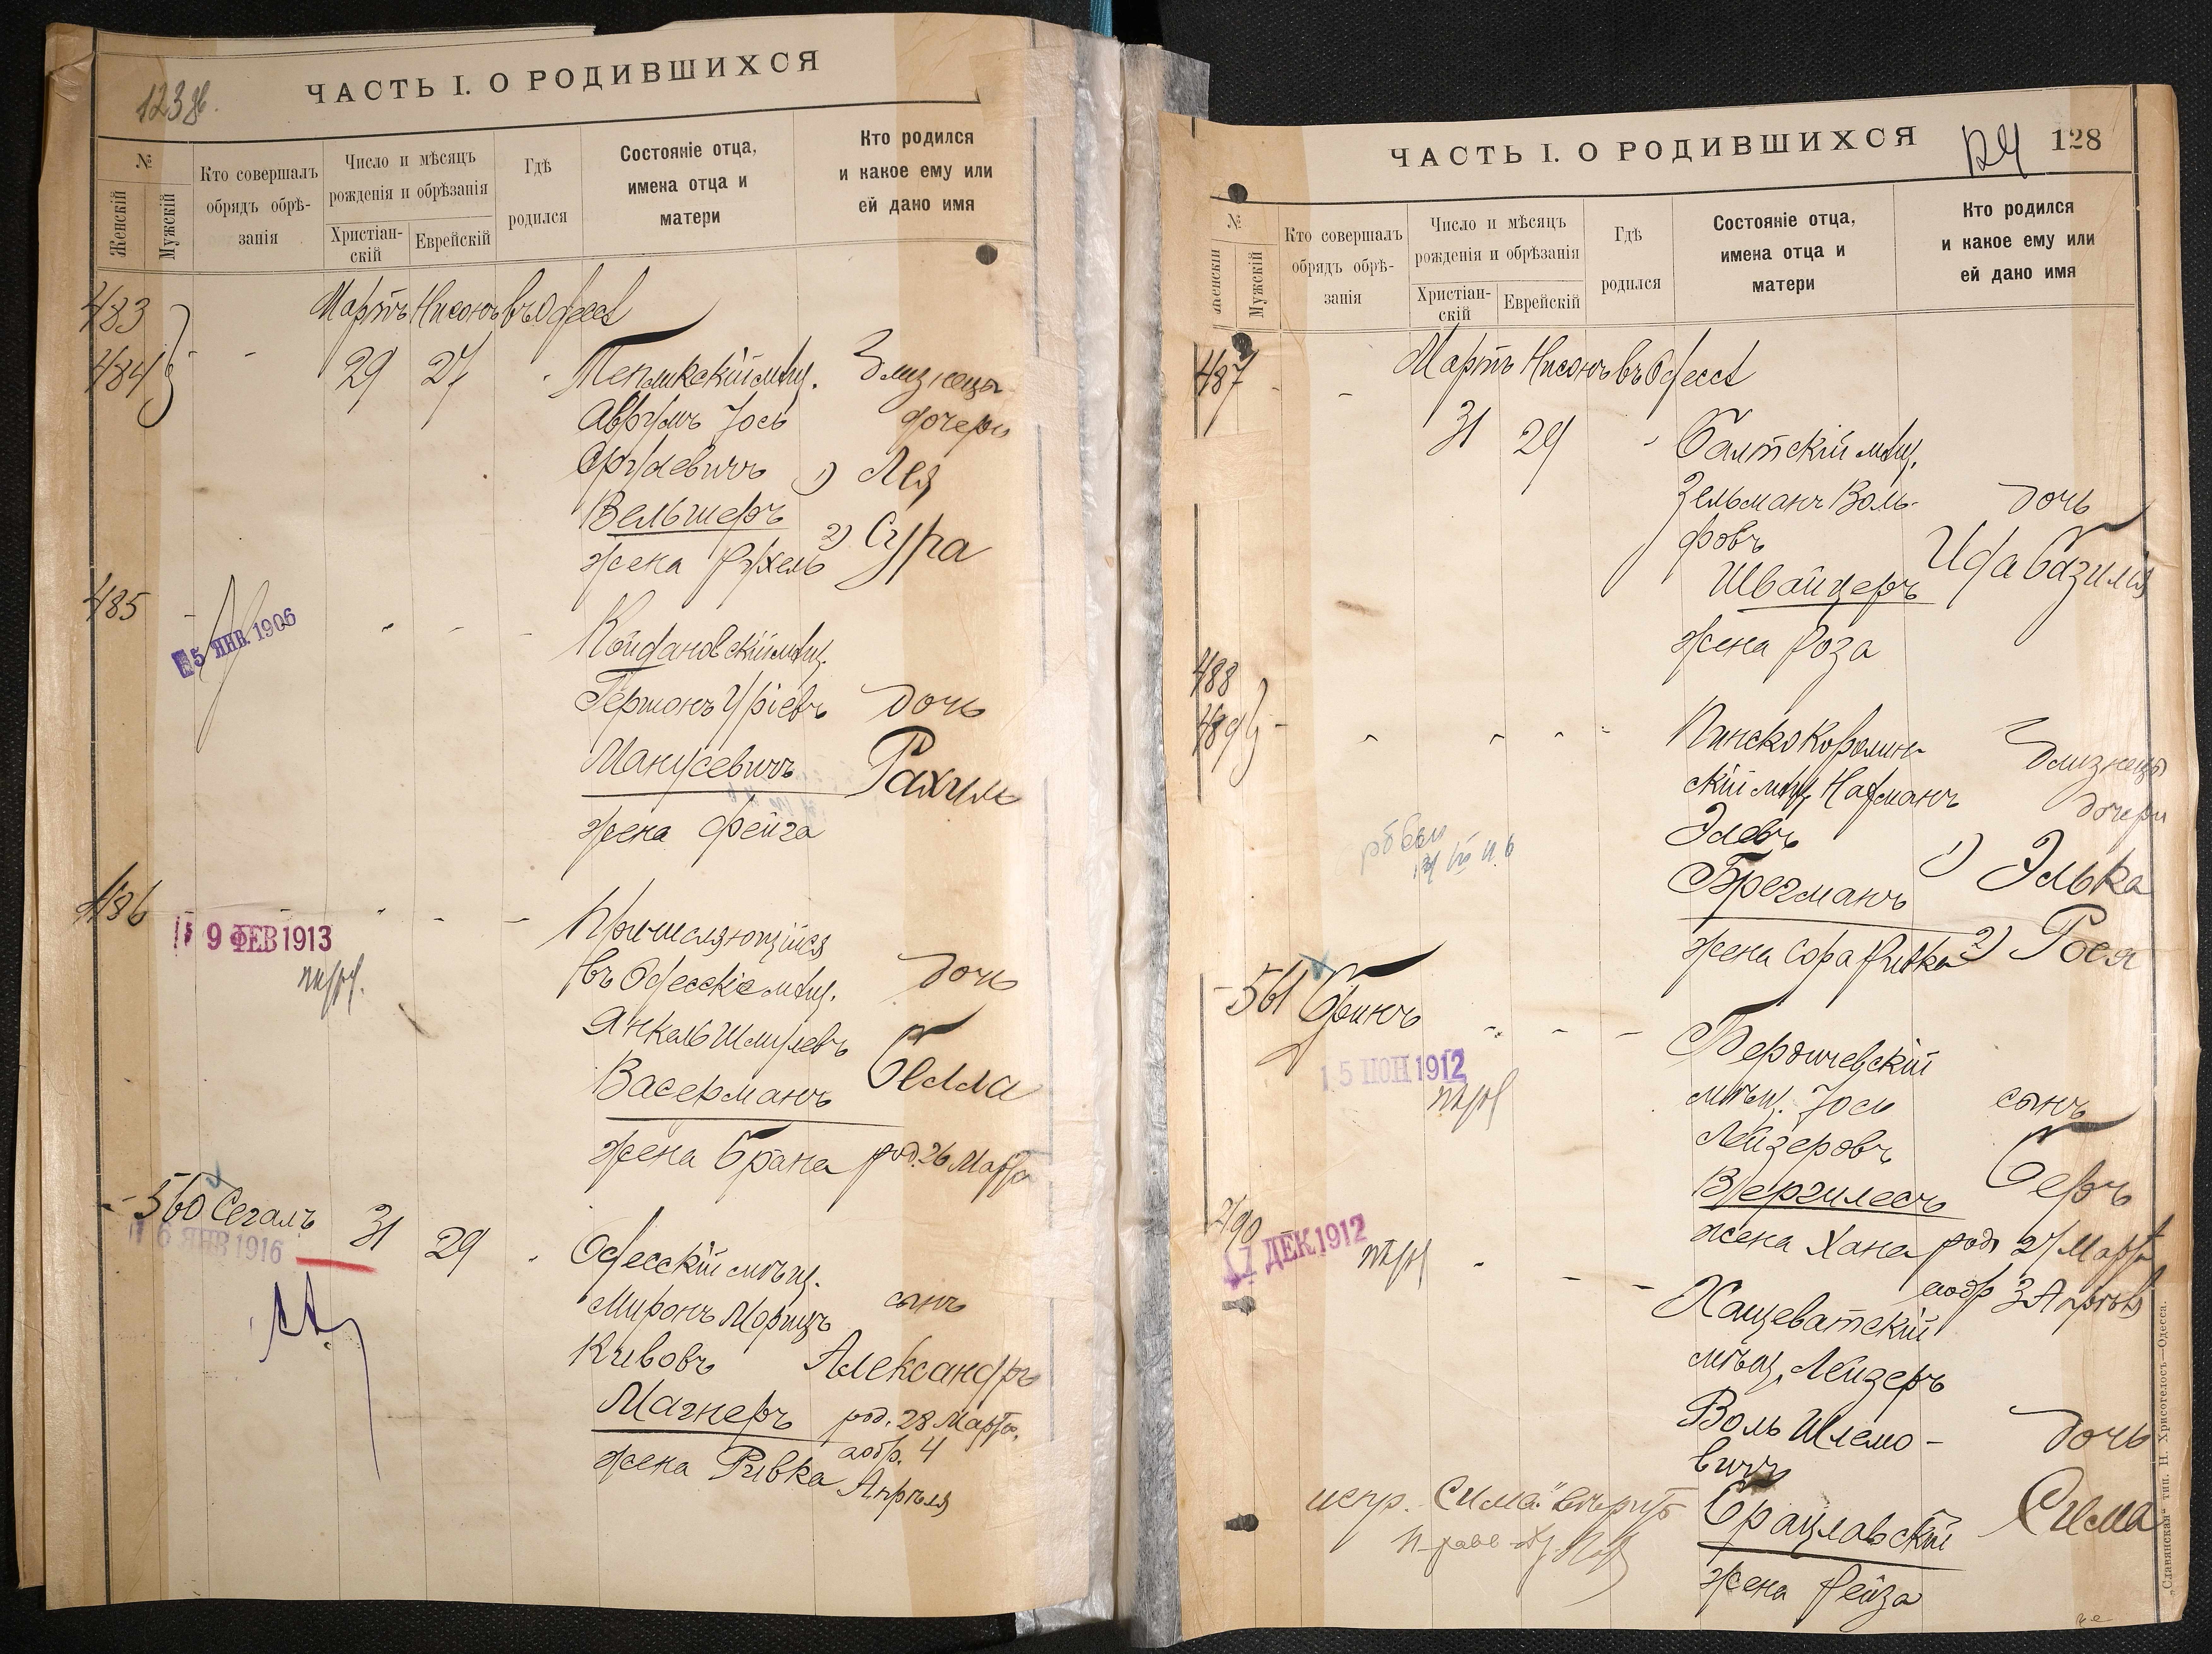 123
ЧАСТЬ I. О РОДИВШИХСЯ
№
Женскій
Мужскій
Кто совершалъ
обрядъ обрѣ-
занія
Число и мѣсяцъ
рожденія и обрѣзанія
Христіан-
скій
Еврейскій
Гдѣ
родился
Состояніе отца,
имена отца и
матери
Кто родился
и какое ему или
ей дано имя
483
Мартъ Нисонъ въ Одессѣ
484
29 27
Тепликскій мѣщ. Близнецы
Аврумъ Іось дочери
Сруле­вичъ 1) Лея
Вельшеръ 2) Сура
жена Рухель
485
5 ЯНВ. 1906
Койдановскій мѣщ.
Гершонъ Уріевъ дочь
Манусевичъ Рахиль
жена Фейга
486
9 ФЕВ 1913
Причисляющійся
въ Одесскіе мѣщ. дочь
Янкель Шмулевъ
Васерманъ Белла
жена Брана род. 26 Марта
560 Сегалъ 31 29
6 ЯНВ 1916
Одесскій мѣщ.
Миронъ Морицъ сынъ
Кивовъ Александръ
Магнеръ род. 28 Марта
жена Ривка аобр. 4
Апрѣля
ЧАСТЬ I. О РОДИВШИХСЯ
128
№
Женскій
Мужскій
Кто совершалъ
обрядъ обрѣ-
занія
Число и мѣсяцъ
рожденія и обрѣзанія
Христіан-
скій
Еврейскій
Гдѣ
родился
Состояніе отца,
имена отца и
матери
Кто родился
и какое ему или
ей дано имя
487
Мартъ Нисонъ въ Одессѣ
31 29
Балтскій мѣщ.
Зельманъ Воль- дочь
фовъ
Швайцеръ Ида Базилія
жена Роза
488
489
Пинско Каролин- Близнецы
скій мѣщ. Нахманъ дочери
Элевъ
Брегманъ 1) Элька
жена Сора Ривка 2) Рося
561 Фаинъ
15 ІЮН 1912
Бердичевскій
мѣщ. Іось сынъ
Лейзеровъ
Вергилесъ Беръ
жена Хана род. 27 Марта
аобр 3 Апрѣля
490
17 ДЕК 1912
Хащеватскій
мѣщ. Лейзеръ
Воль Шлемо- дочь
вичъ
испр. "Сима" вѣрить
Брацлавскій Сима
жена Рейза
„Славянская“ тип. Н. Хрисогелосъ—Одесса.